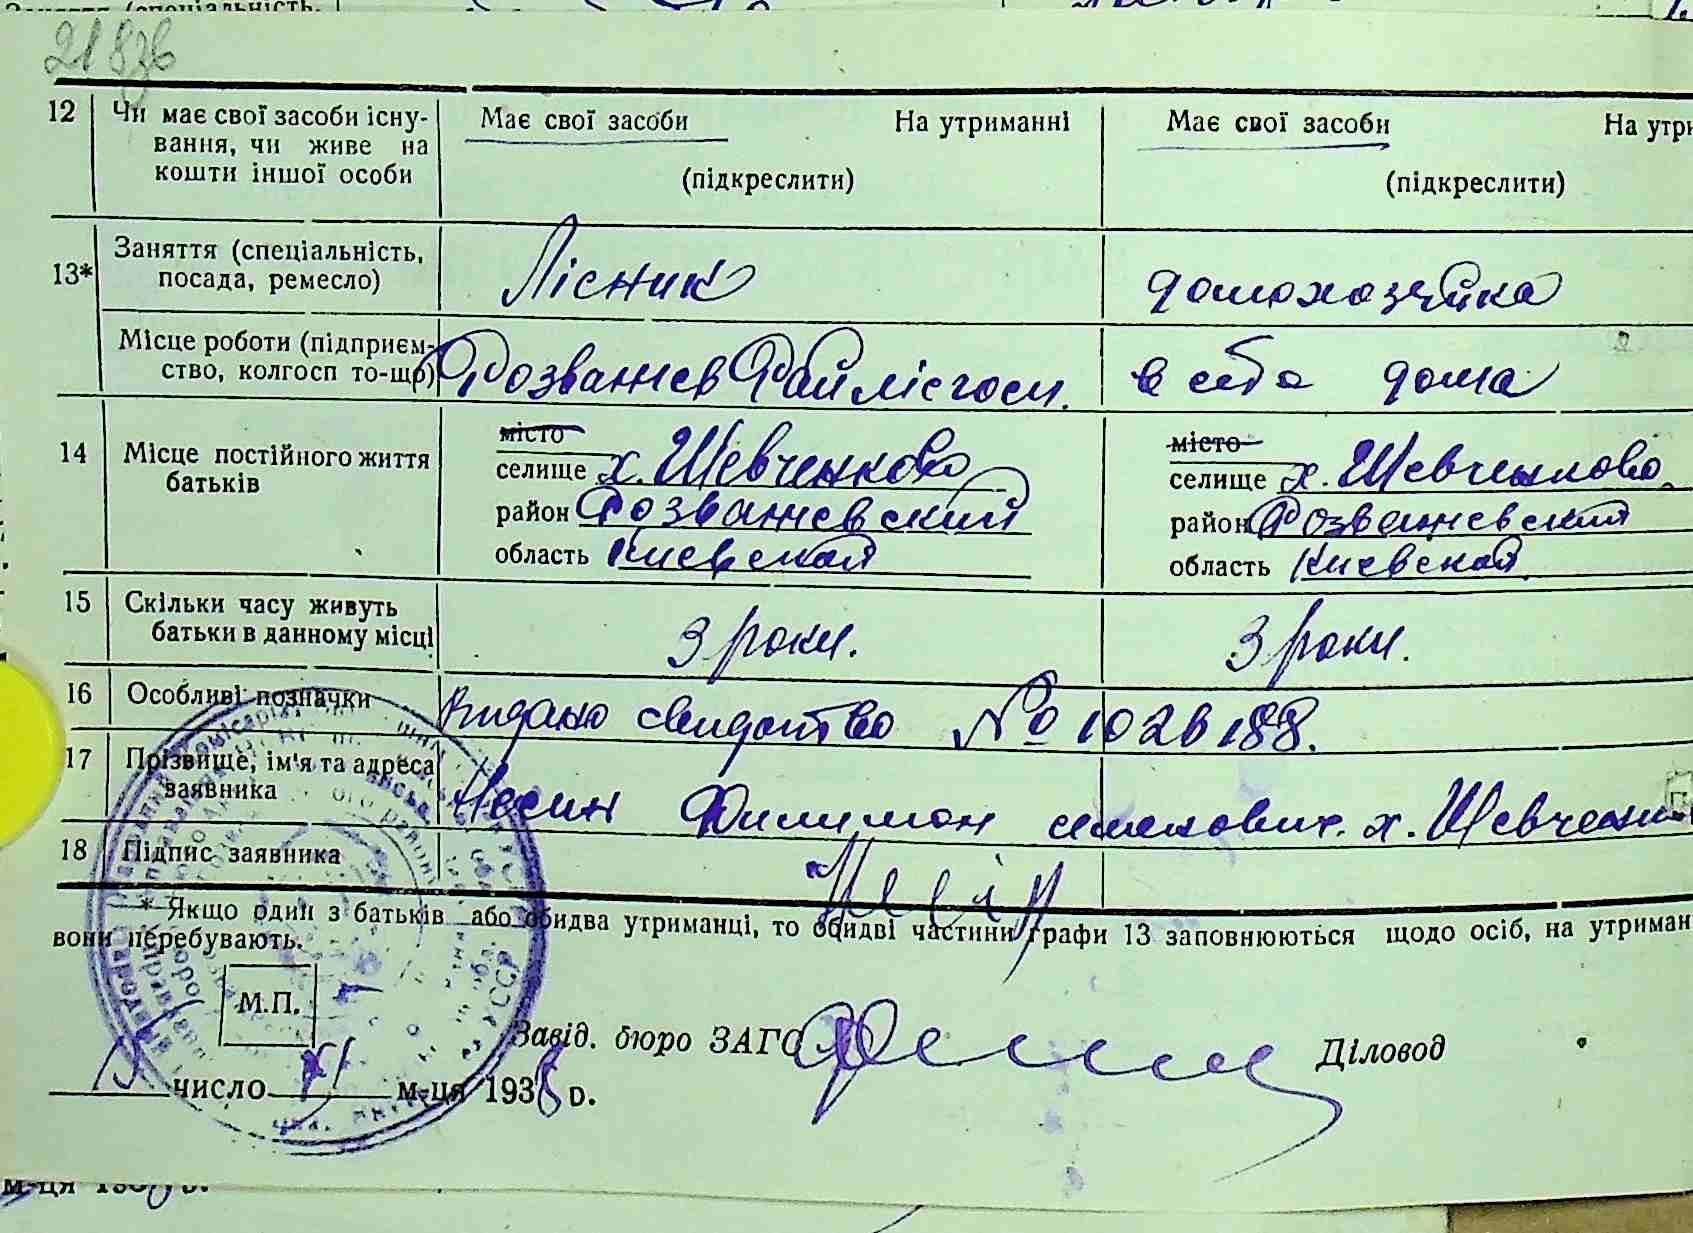 21 876
12 Чи має свої засоби існу- Має свої засоби На утриманні Має свої засоби На утри
вання, чи живе на
кошти іншої особи (підкреслити) (підкреслити)
Заняття (спеціальність,
13* посада, ремесло) Лісник домохозяйка
Місце роботи (підприєм-
ство, колгосп то-що) Розважев Райлісгосп. в себе дома
місто місто
14 Місце постійного життя селище х. Шевченково селище х. Шевченково
батьків район Розважевский район Розважевский
область Киевская область Киевская
15 Скільки часу живуть
батьки в данному місці 3 роки. 3 роки.
16 Особливі позначки Видано свидотво № 1026188.
17 Прізвище, ім'я та адреса
заявника Несин Филимон семенович. х. Шевченк
18 Підпис заявника
* Якщо один з батьків або обидва утриманці, то обидві частини графи 13 заповнюються щодо осіб, на утриман
вони перебувають.
М.П.
Завід. бюро ЗАГС Діловод
15 число XI м-ця 1938 р.